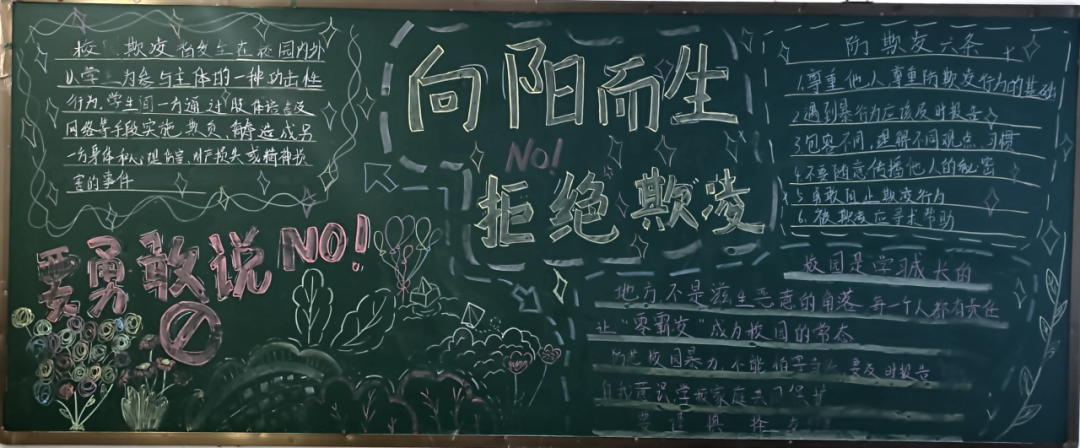 校 欺凌指发生在校园内外
以学 为参与主体的一种攻击性
行为.学生间一方通过肢体语言及
网络等手段实施欺负 造成另
一方身体和心理 财产损失或精神损
害的事件
要勇敢说NO!
向阳而生
NO!
拒绝欺凌
防欺凌六条
1.尊重他人尊重防欺凌行为的基础
2.遇到暴行为应该及时报告
3.包容不同,理解不同观点、习惯
4.不要随意传播他人的秘密
5.勇敢阻止欺凌行为
6.被欺凌应寻求帮助
校园是学习成长的
地方不是滋生恶意的角落 每一个人都有责任
让“零霸凌”成为校园的常态
防范校园暴力不能 要及时报告
自我 学校家庭共